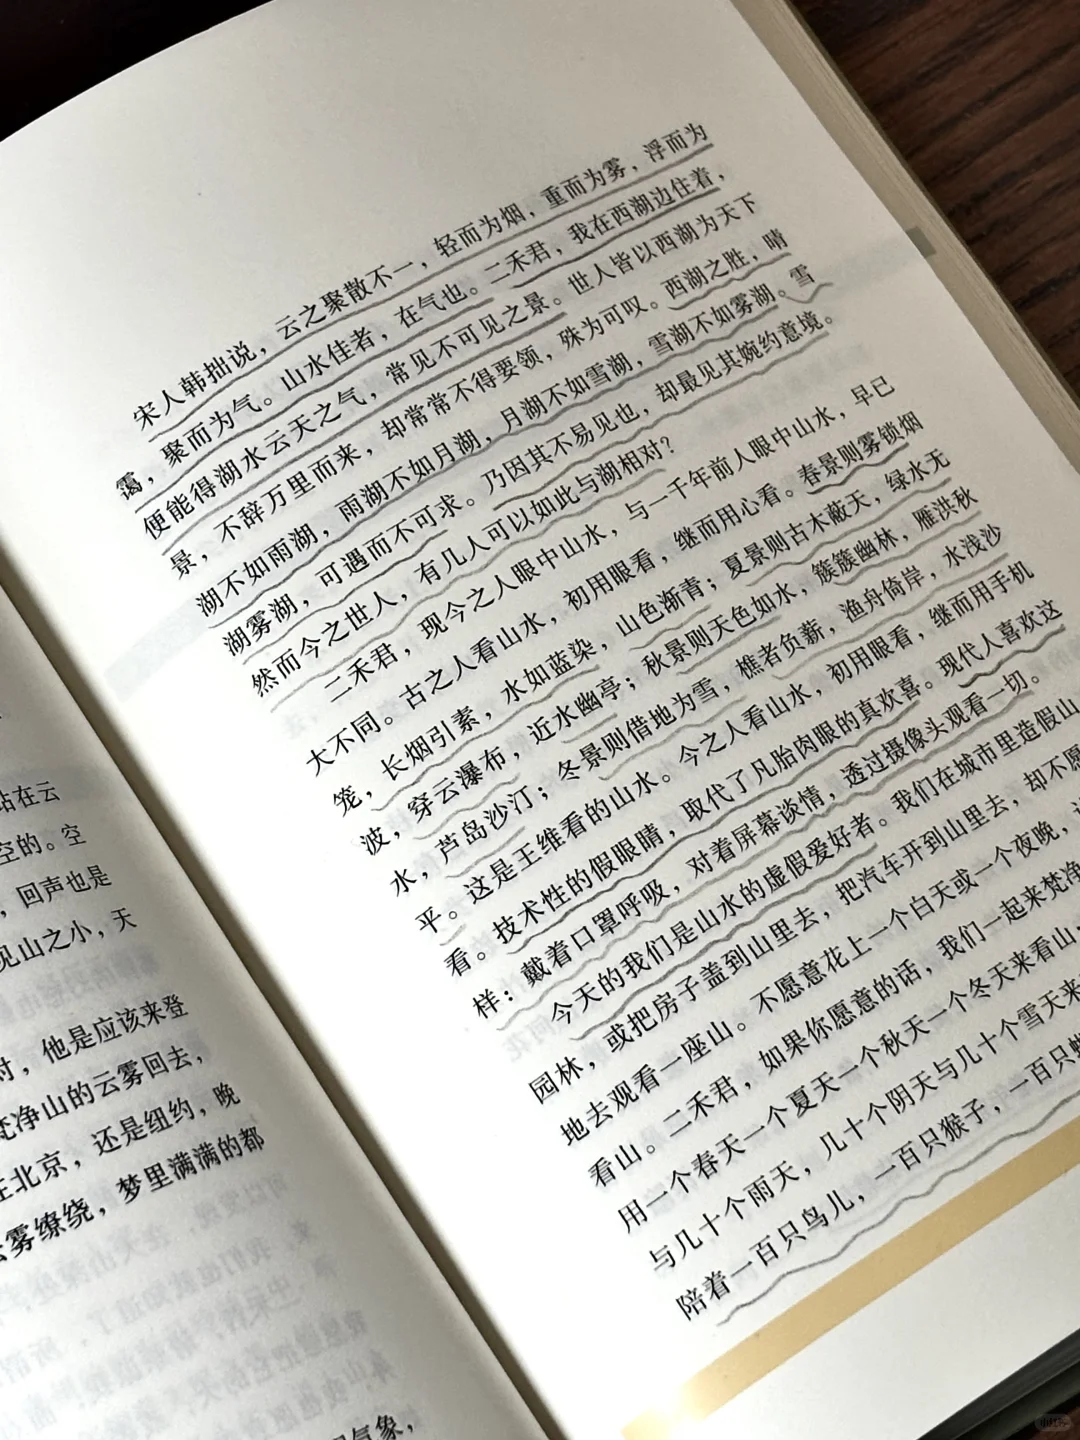 站在云
空的。空
，回声也是
见山之小，天
时，他是应该来登
梵净山的云雾回去，
在北京，还是纽约，晚
云雾缭绕，梦里满满的都
气象，
宋人韩拙说，云之聚散不一，轻而为烟，重而为雾，浮而为
霭，聚而为气。山水佳者，在气也。二禾君，我在西湖边住着，
便能得湖水云天之气，常见不可见之景。世人皆以西湖为天下
景，不辞万里而来，却常常不得要领，殊为可叹。西湖之胜，晴
湖不如雨湖，雨湖不如月湖，月湖不如雪湖，雪湖不如雾湖。雪
湖雾湖，可遇而不可求。乃因其不易见也，却最见其婉约意境。
然而今之世人，有几人可以如此与湖相对？
二禾君，现今之人眼中山水，与一千年前人眼中山水，早已
大不同。古之人看山水，初用眼看，继而用心看。春景则雾锁烟
笼，长烟引素，水如蓝染，山色渐青；夏景则古木蔽天，绿水无
波，穿云瀑布，近水幽亭；秋景则天色如水，簇簇幽林，雁洪秋
水，芦岛沙汀；冬景则借地为雪，樵者负薪，渔舟倚岸，水浅沙
平。这是王维看的山水。今之人看山水，初用眼看，继而用手机
看。技术性的假眼睛，取代了凡胎肉眼的真欢喜。现代人喜欢这
样：戴着口罩呼吸，对着屏幕谈情，透过摄像头观看一切。
今天的我们是山水的虚假爱好者。我们在城市里造假山
园林，或把房子盖到山里去，把汽车开到山里去，却不愿
地去观看一座山。不愿意花上一个白天或一个夜晚，
看山。二禾君，如果你愿意的话，我们一起来梵净
用一个春天一个夏天一个秋天一个冬天来看山，
与几十个雨天，几十个阴天与几十个雪天来
陪着一百只鸟儿，一百只猴子，一百只
小红书